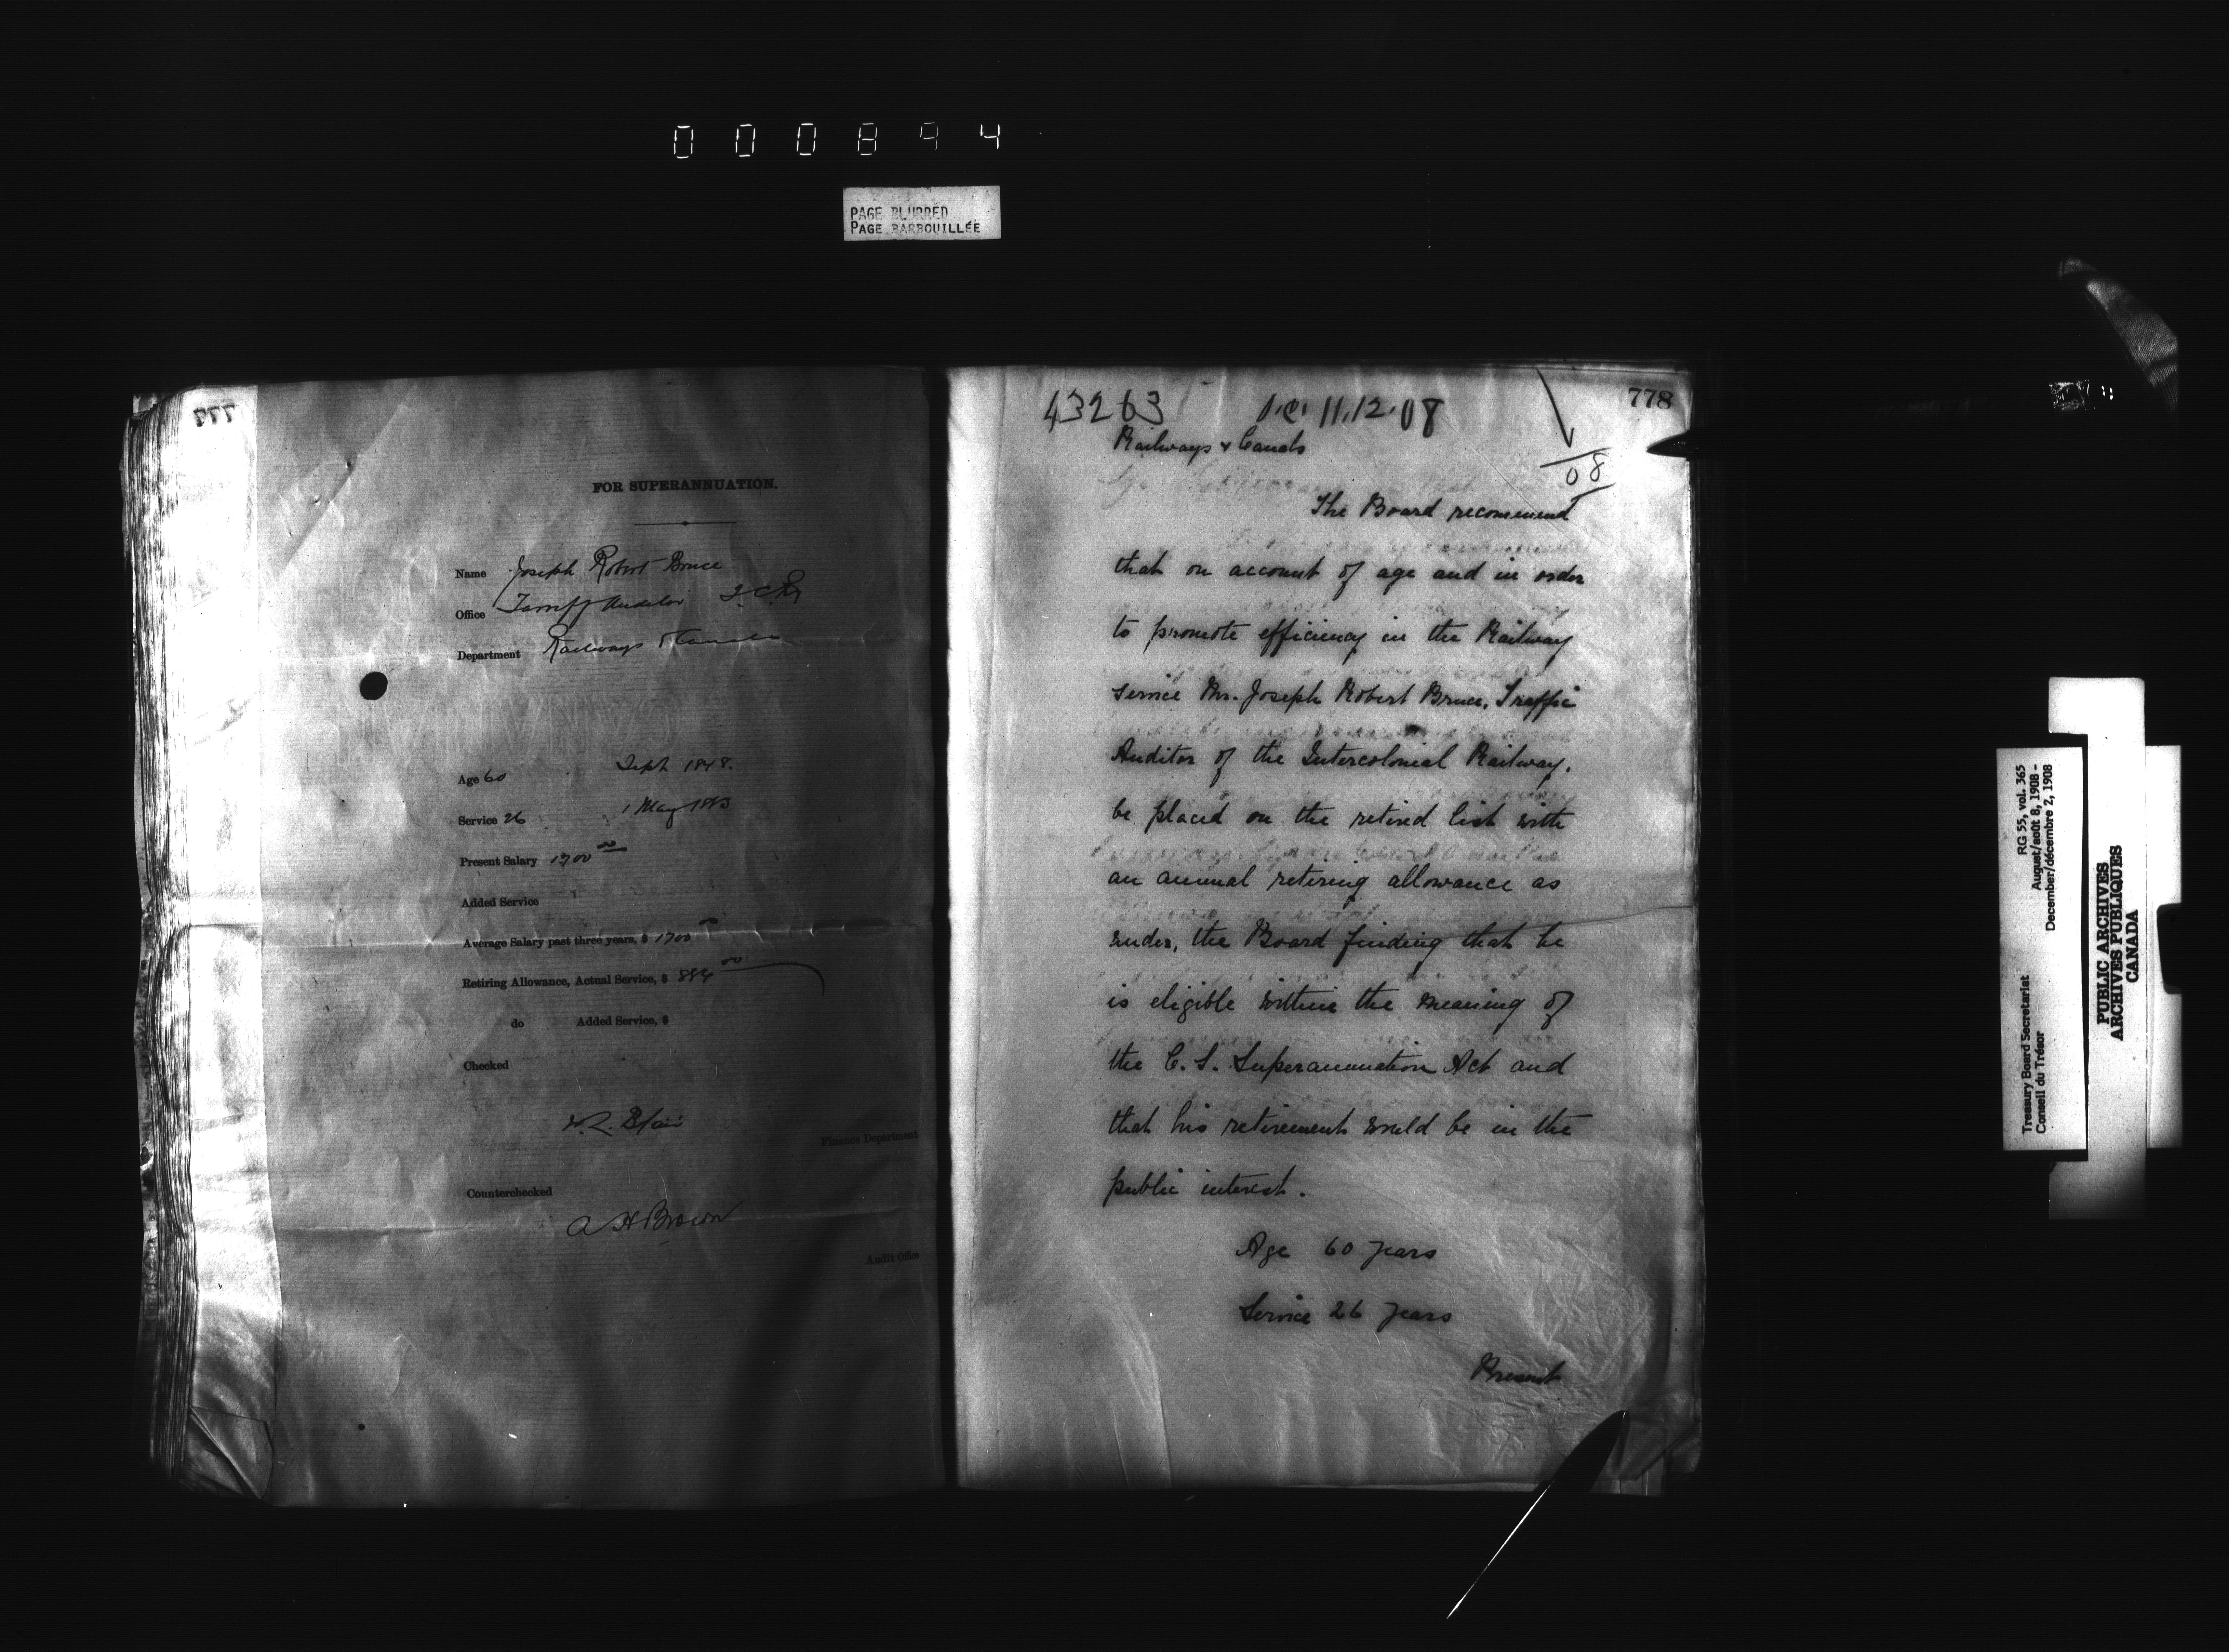 000894
PAGE BLURRED
PAGE BARBOUILLÉE
777
FOR SUPERANNUATION.
Name Joseph Robert Bruce
Office Auditor I.C.Ry
Department Railways & Canals
CANADA
Age 60 Sept 1848.
Service 26 1 May 1883
Present Salary 1700 00
Added Service
Average Salary past three years, $ 1700 00
Retiring Allowance, Actual Service, $ 884 00
do Added Service, $
Checked
Blair
Finance Department
Counterchecked
A H Brown
Audit Office
778
43263 11.12.08
Railways & Canals
08
The Board recommend
that on account of age and in order
to promote efficiency in the Railway
service Mr. Joseph Robert Bruce, Traffic
Auditor of the Intercolonial Railway,
be placed on the retired list with
an annual retiring allowance as
under, the Board finding that he
is eligible within the meaning of
the C. S. Superannuation Act and
that his retirement would be in the
public interest.
Age 60 years
Service 26 years
Present
Treasury Board Secretariat RG 55, vol. 365
Conseil du Trésor August/août 8, 1908 -
December/décembre 2, 1908
PUBLIC ARCHIVES
ARCHIVES PUBLIQUES
CANADA